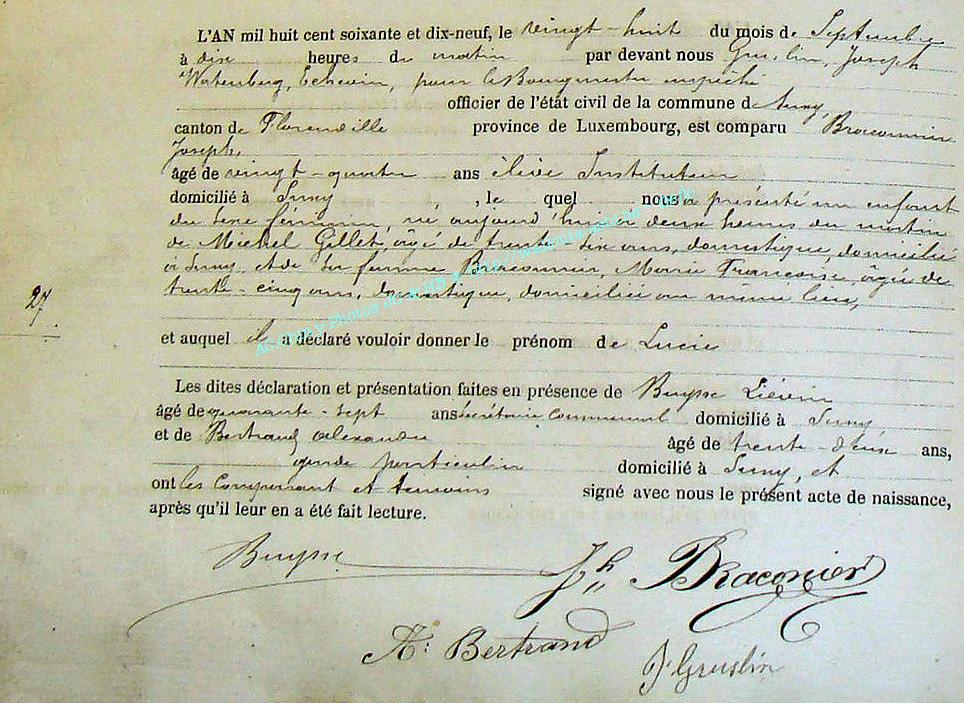 L'AN mil huit cent soixante et dix-neuf, le vingt-huit du mois de Septembre
à dix heures du matin par devant nous Gruslin, Joseph
Echevin, pour le Bourgmestre empêché
officier de l'état civil de la commune de Suny,
canton de Florenville province de Luxembourg, est comparu Braconnier
Joseph,
âgé de vingt-quatre ans élève Instituteur
domicilié à Suny, le quel nous a présenté un enfant
du sexe féminin, né aujourd'hui à deux heures du matin
de Michel Gillet, âgé de trente-six ans, domestique, domicilié
à Suny et de sa femme Braconnier, Marie Françoise, âgée de
trente-cinq ans, domestique, domiciliée au même lieu,
27
et auquel il a déclaré vouloir donner le prénom de Lucie
Les dites déclaration et présentation faites en présence de Buysse Liévin
âgé de quarante-sept ans secrétaire communal domicilié à Suny,
et de Bertrand Alexandre âgé de trente-deux ans,
garde particulier domicilié à Suny, et
ont les comparant et témoins signé avec nous le présent acte de naissance,
après qu'il leur en a été fait lecture.
Buysse
Jh Braconier
A: Bertrand
J Gruslin